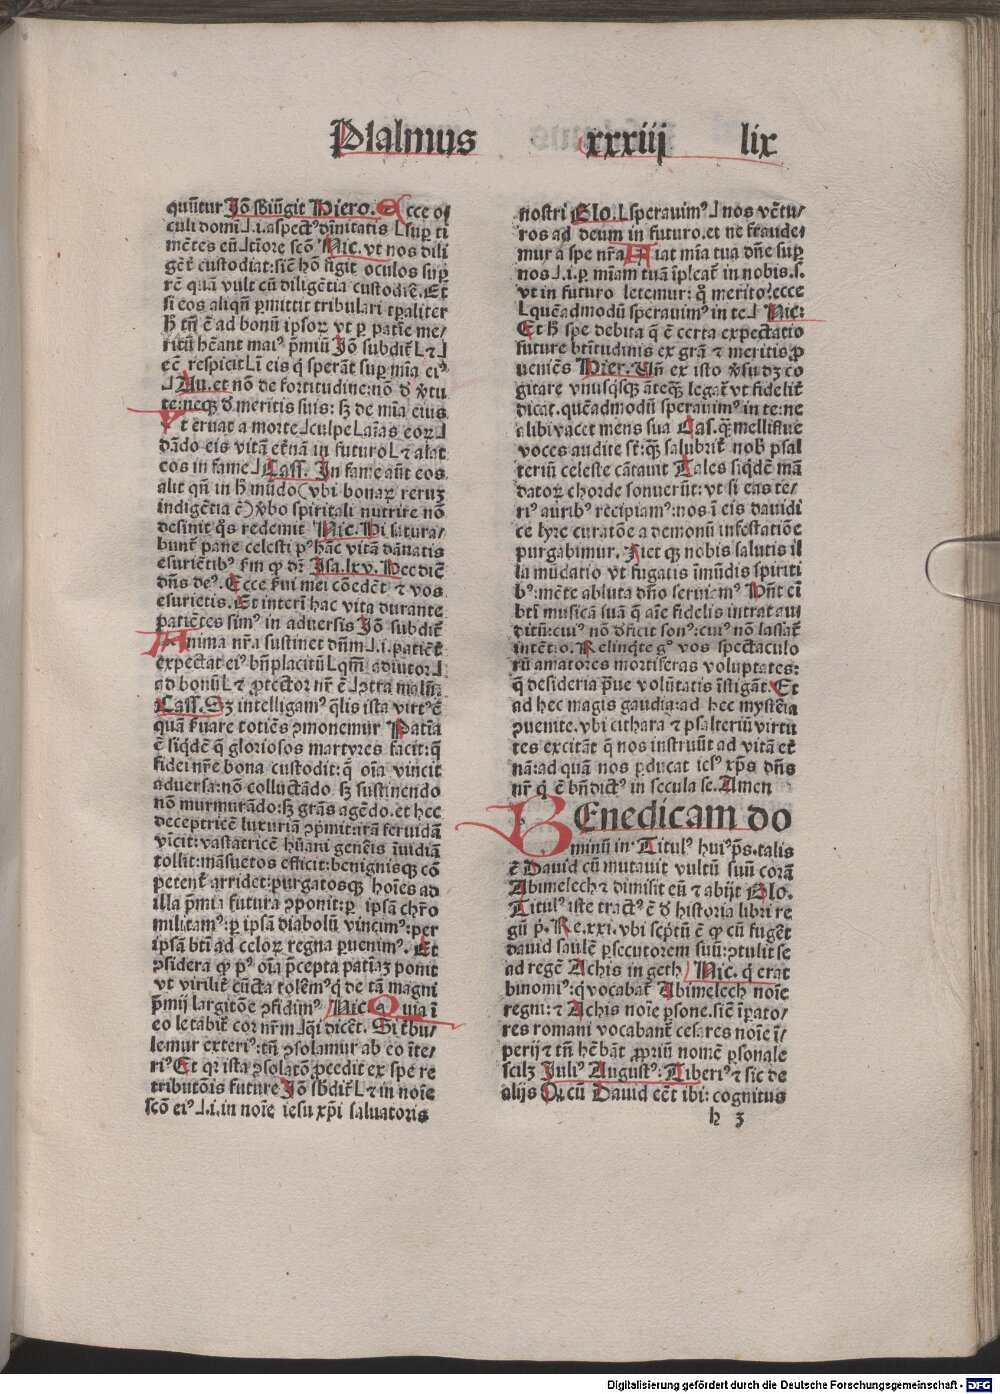 Psalmus xxxiij lix
quūtur Jō sbiūgit Hiero. Ecce o⸗
culi domi⅃ .i. aspectꝰ diuinitatis L suꝑ ti
mētes eū ⅃ tiore scō Nic. vt nos dili
gēt custodiat: sic hō figit oculos suꝑ
rē quā vult cū diligētia custodire. Et
si eos aliqn̄ ꝑmittit tribulari tꝑaliter
h̄ tn̄ ē ad bonū ipsoꝝ vt ꝑ patiē me⸗
ritū hēant maiꝰ p̄miū Jō subdit L ⁊ ⅃
eē respicit L i eis q̄ sperāt suꝑ mīa eiꝰ
⅃ Au. et nō de fortitudine: nō ð ꝟtu
te: neqꝫ ð meritis suis: sꝫ de mīa eius
Vt eruat a morte ⅃ culpe L aīas eoꝝ ⅃
dādo eis vitā etnā in futuro L ⁊ alat
eos in fame ⅃ Cass. In fame aūt eos
alit qn̄ in h̄ mūdo (vbi bonaꝝ reruꝫ
indigētia ē) ꝟbo spiritali nutrire nō
desinit q̄s redemit Nic. Hi satura⸗
bunt pane celesti pꝰ hāc vitā dānatis
esurietibꝰ fm ꝙ dr̄ Isa. lxv. Hec dic̄
dn̄s deꝰ. Ecce fui mei cōedēt ⁊ vos
esurietis. Et interi hac vita durante
patiētes simꝰ in aduersis Jō subdit
Anima nr̄a sustinet dn̄m ⅃ .i. patiēt
expectat eiꝰ bn̄placitū L qm̄ adiutor ⅃
ad bonū L ⁊ ꝓtector nr̄ ē ⅃ ꝯtra malū.
Cass. Sꝫ intelligamꝰ q̄lis ista virtꝰ ē
quā fuare totiēs ꝯmonemur Patīa
ē siqdē q̄ gloriosos martyres facit: q̄
fidei nr̄e bona custodit: q̄ oīa vincit
aduersa: nō colluctādo sꝫ sustinendo
nō murmurādo: sꝫ gr̄as agēdo. et hec
deceptricē luxuriā ꝯp̄mit: irā feruidā
vīcit: vastatricē hūani genēis īuidiā
tollit: māsuetos efficit: benignisqꝫ cō
petent arridet: purgatosqꝫ hoīes ad
illa p̄mia futura ꝯponit: ꝑ ipsā chr̄o
militamꝰ: ꝑ ipsā diabolū vincimꝰ: per
ipsā bt̄i ad celoꝝ regna ꝑuenimꝰ. Et
ꝯsidera ꝙ pꝰ oīa p̄cepta patīaꝫ ponit
vt virilit cūcta tolēmꝰ q̄ de tā magni
p̄mij largitōe ꝯfidimꝰ Nic. Quia ī
eo letabit cor nr̄m ⅃ q̄i dicēt. Si tbu⸗
lemur exteriꝰ: tn̄ ꝯsolamur ab eo īte⸗
riꝰ Et qꝛ ista ꝯsolatō ꝓcedit ex spe re
tributōis future Jō sbdit L ⁊ in noīe
scō eiꝰ ⅃ .i. in noīe iesu xp̄i saluatoris
nostri Glo. L sperauimꝰ ⅃ nos vētu⸗
ros ad deum in futuro. et ne fraude⸗
mur a spe nr̄a Fiat mīa tua dn̄e suꝑ
nos ⅃ .i. ꝑ mīam tuā īpleat in nobis. s.
vt in futuro letemur: q̄ merito: ecce
L quēadmodū sperauimꝰ in te ⅃ Nic:
Et h̄ spe debita q̄ ē certa expectatio
future bt̄itudinis ex gr̄a ⁊ meritis ꝓ
ueniēs Hier. Vn̄ ex isto ꝟsu dꝫ co
gitare vnusqsqꝫ āteqꝫ legat vt fidelit
dicat. quēadmodū sperauimꝰ in te: ne
alibi vacet mens sua Cas. q̄ melliflue
voces audite st̄: q̄ꝫ salubrit nob psal
teriū celeste cātauit Tales siqdē mā
datoꝝ chorde sonuerūt: vt si eas te⸗
riꝰ auribꝰ recipiamꝰ: nos ī eis dauidi
ce lyre curatōe a demonū infestatiōe
purgabimur. Fiet qꝫ nobis salutis il
la mūdatio vt fugatis īmūdis spiriti
bꝰ: mēte abluta dn̄o seruiamꝰ Pn̄t ei
bt̄i musicā suā q̄ aīe fidelis intrat au⸗
ditū: cuiꝰ nō deficit sonꝰ: cuiꝰ nō lassat
intētio. Relinqte gꝰ vos spectaculo
rū amatores mortiferas voluptates:
q̄ desideria ꝑue volūtatis īstigāt. Et
ad hec magis gaudia: ad hec mystēia
ꝯuenite. vbi cithara ⁊ psalteriū virtu
tes excitāt q̄ nos instruūt ad vitā et
nā: ad quā nos ꝑducat iesꝰ xp̄s dn̄s
nr̄ q̄ ē bn̄dictꝰ in secula se. Amen
BEnedicam do
minū in Titulꝰ huiꝰ p̄s. talis
ē Dauid cū mutauit vultū suū corā
Abimelech ⁊ dimisit eū ⁊ abijt Glo.
Titulꝰ iste tractꝰ ē ð historia libri re
gū p̄. Re. xxi. vbi sc̄ptū ē ꝙ cū fugēt
dauid saulē ꝑsecutorem suū: ꝯtulit se
ad regē Achis in geth Nic. q̄ erat
binomiꝰ: q̄ vocabat Abimelech noīe
regni: ⁊ Achis noīe ꝑsone. sic īꝑato⸗
res romani vocabant cesares noīe ī⸗
perij ⁊ tn̄ hēbāt ꝓpriū nomē ꝑsonale
scilꝫ Juliꝰ Augustꝰ: Tiberiꝰ ⁊ sic de
alijs Qꝛ cū Dauid eēt ibi: cognitus
h 3
Digitalisierung gefördert durch die Deutsche Forschungsgemeinschaft - DFG